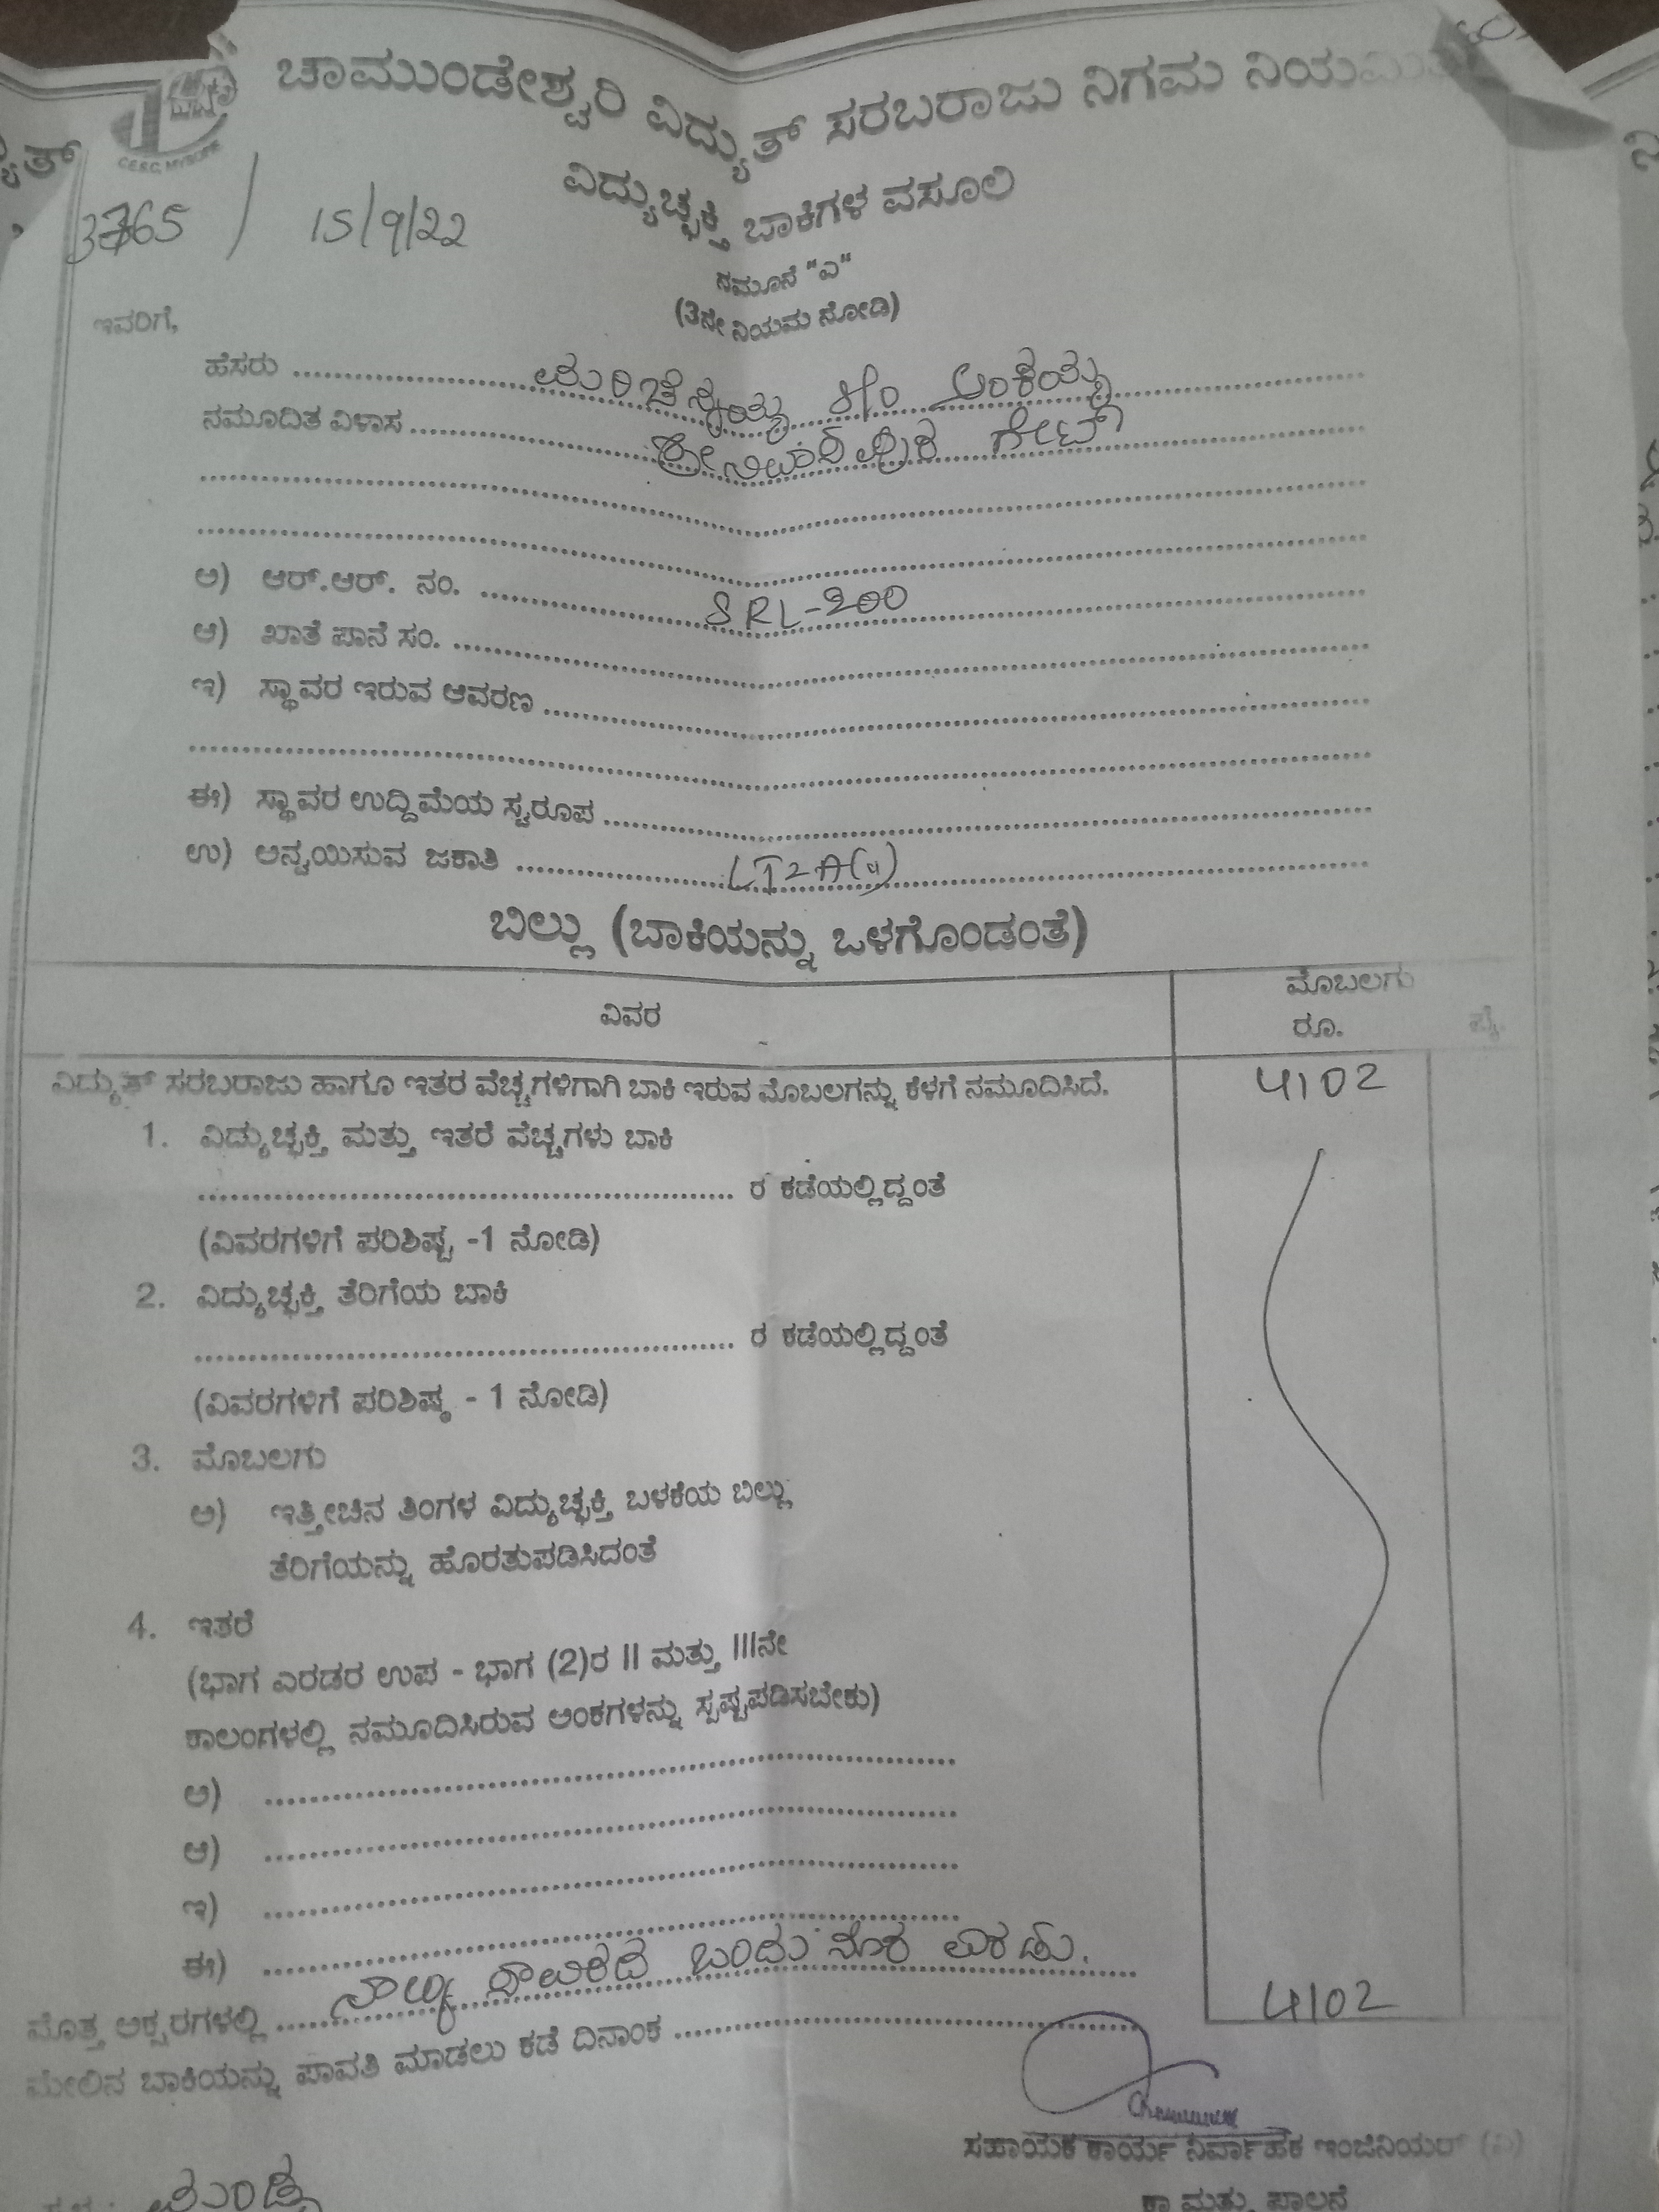 ಚಾಮುಂಡೇಶ್ವರಿ ವಿದ್ಯುತ್ ಸರಬರಾಜು ನಿಗಮ ನಿಯಮಿತ
CESC, MYSORE
ವಿದ್ಯುಚ್ಛಕ್ತಿ ಬಾಕಿಗಳ ವಸೂಲಿ
3765 / 15/9/22
ನಮೂನೆ "ಎ"
(3ನೇ ನಿಯಮ ನೋಡಿ)
ಇವರಿಗೆ,
ಹೆಸರು ಮರಿಚೆನ್ನಯ್ಯ S/o ಅಂಕಯ್ಯ
ನಮೂದಿತ ವಿಳಾಸ ಶ್ರೀನಿವಾಸಪುರ ಗೇಟ್
ಅ) ಆರ್.ಆರ್. ನಂ. SRL-200
ಆ) ಖಾತೆ ಪಾನೆ ಸಂ.
ಇ) ಸ್ಥಾವರ ಇರುವ ಆವರಣ
ಈ) ಸ್ಥಾವರ ಉದ್ದಿಮೆಯ ಸ್ವರೂಪ
ಉ) ಅನ್ವಯಿಸುವ ಜಕಾತಿ LT2A(ii)
ಬಿಲ್ಲು (ಬಾಕಿಯನ್ನು ಒಳಗೊಂಡಂತೆ)
ವಿವರ ಮೊಬಲಗು
ರೂ. ಪೈ.
ವಿದ್ಯುತ್ ಸರಬರಾಜು ಹಾಗೂ ಇತರ ವೆಚ್ಚಗಳಿಗಾಗಿ ಬಾಕಿ ಇರುವ ಮೊಬಲಗನ್ನು ಕೆಳಗೆ ನಮೂದಿಸಿದೆ. 4102
1. ವಿದ್ಯುಚ್ಛಕ್ತಿ ಮತ್ತು ಇತರೆ ವೆಚ್ಚಗಳು ಬಾಕಿ
ರ ಕಡೆಯಲ್ಲಿದ್ದಂತೆ
(ವಿವರಗಳಿಗೆ ಪರಿಶಿಷ್ಟ -1 ನೋಡಿ)
2. ವಿದ್ಯುಚ್ಛಕ್ತಿ ತೆರಿಗೆಯ ಬಾಕಿ
ರ ಕಡೆಯಲ್ಲಿದ್ದಂತೆ
(ವಿವರಗಳಿಗೆ ಪರಿಶಿಷ್ಠ - 1 ನೋಡಿ)
3. ಮೊಬಲಗು
ಅ) ಇತ್ತೀಚಿನ ತಿಂಗಳ ವಿದ್ಯುಚ್ಛಕ್ತಿ ಬಳಕೆಯ ಬಿಲ್ಲು
ತೆರಿಗೆಯನ್ನು ಹೊರತುಪಡಿಸಿದಂತೆ
4. ಇತರೆ
(ಭಾಗ ಎರಡರ ಉಪ - ಭಾಗ (2)ರ II ಮತ್ತು IIIನೇ
ಕಾಲಂಗಳಲ್ಲಿ ನಮೂದಿಸಿರುವ ಅಂಕಗಳನ್ನು ಸ್ಪಷ್ಟಪಡಿಸಬೇಕು)
ಅ)
ಆ)
ಇ)
ಈ)
ಮೊತ್ತ ಅಕ್ಷರಗಳಲ್ಲಿ ನಾಲ್ಕು ಸಾವಿರದ ಒಂದು ನೂರ ಎರಡು. 4102
ಮೇಲಿನ ಬಾಕಿಯನ್ನು ಪಾವತಿ ಮಾಡಲು ಕಡೆ ದಿನಾಂಕ
ಸಹಾಯಕ ಕಾರ್ಯ ನಿರ್ವಾಹಕ ಇಂಜಿನಿಯರ್ (ವಿ)
ಕಾ ಮತ್ತು ಪಾಲನೆ